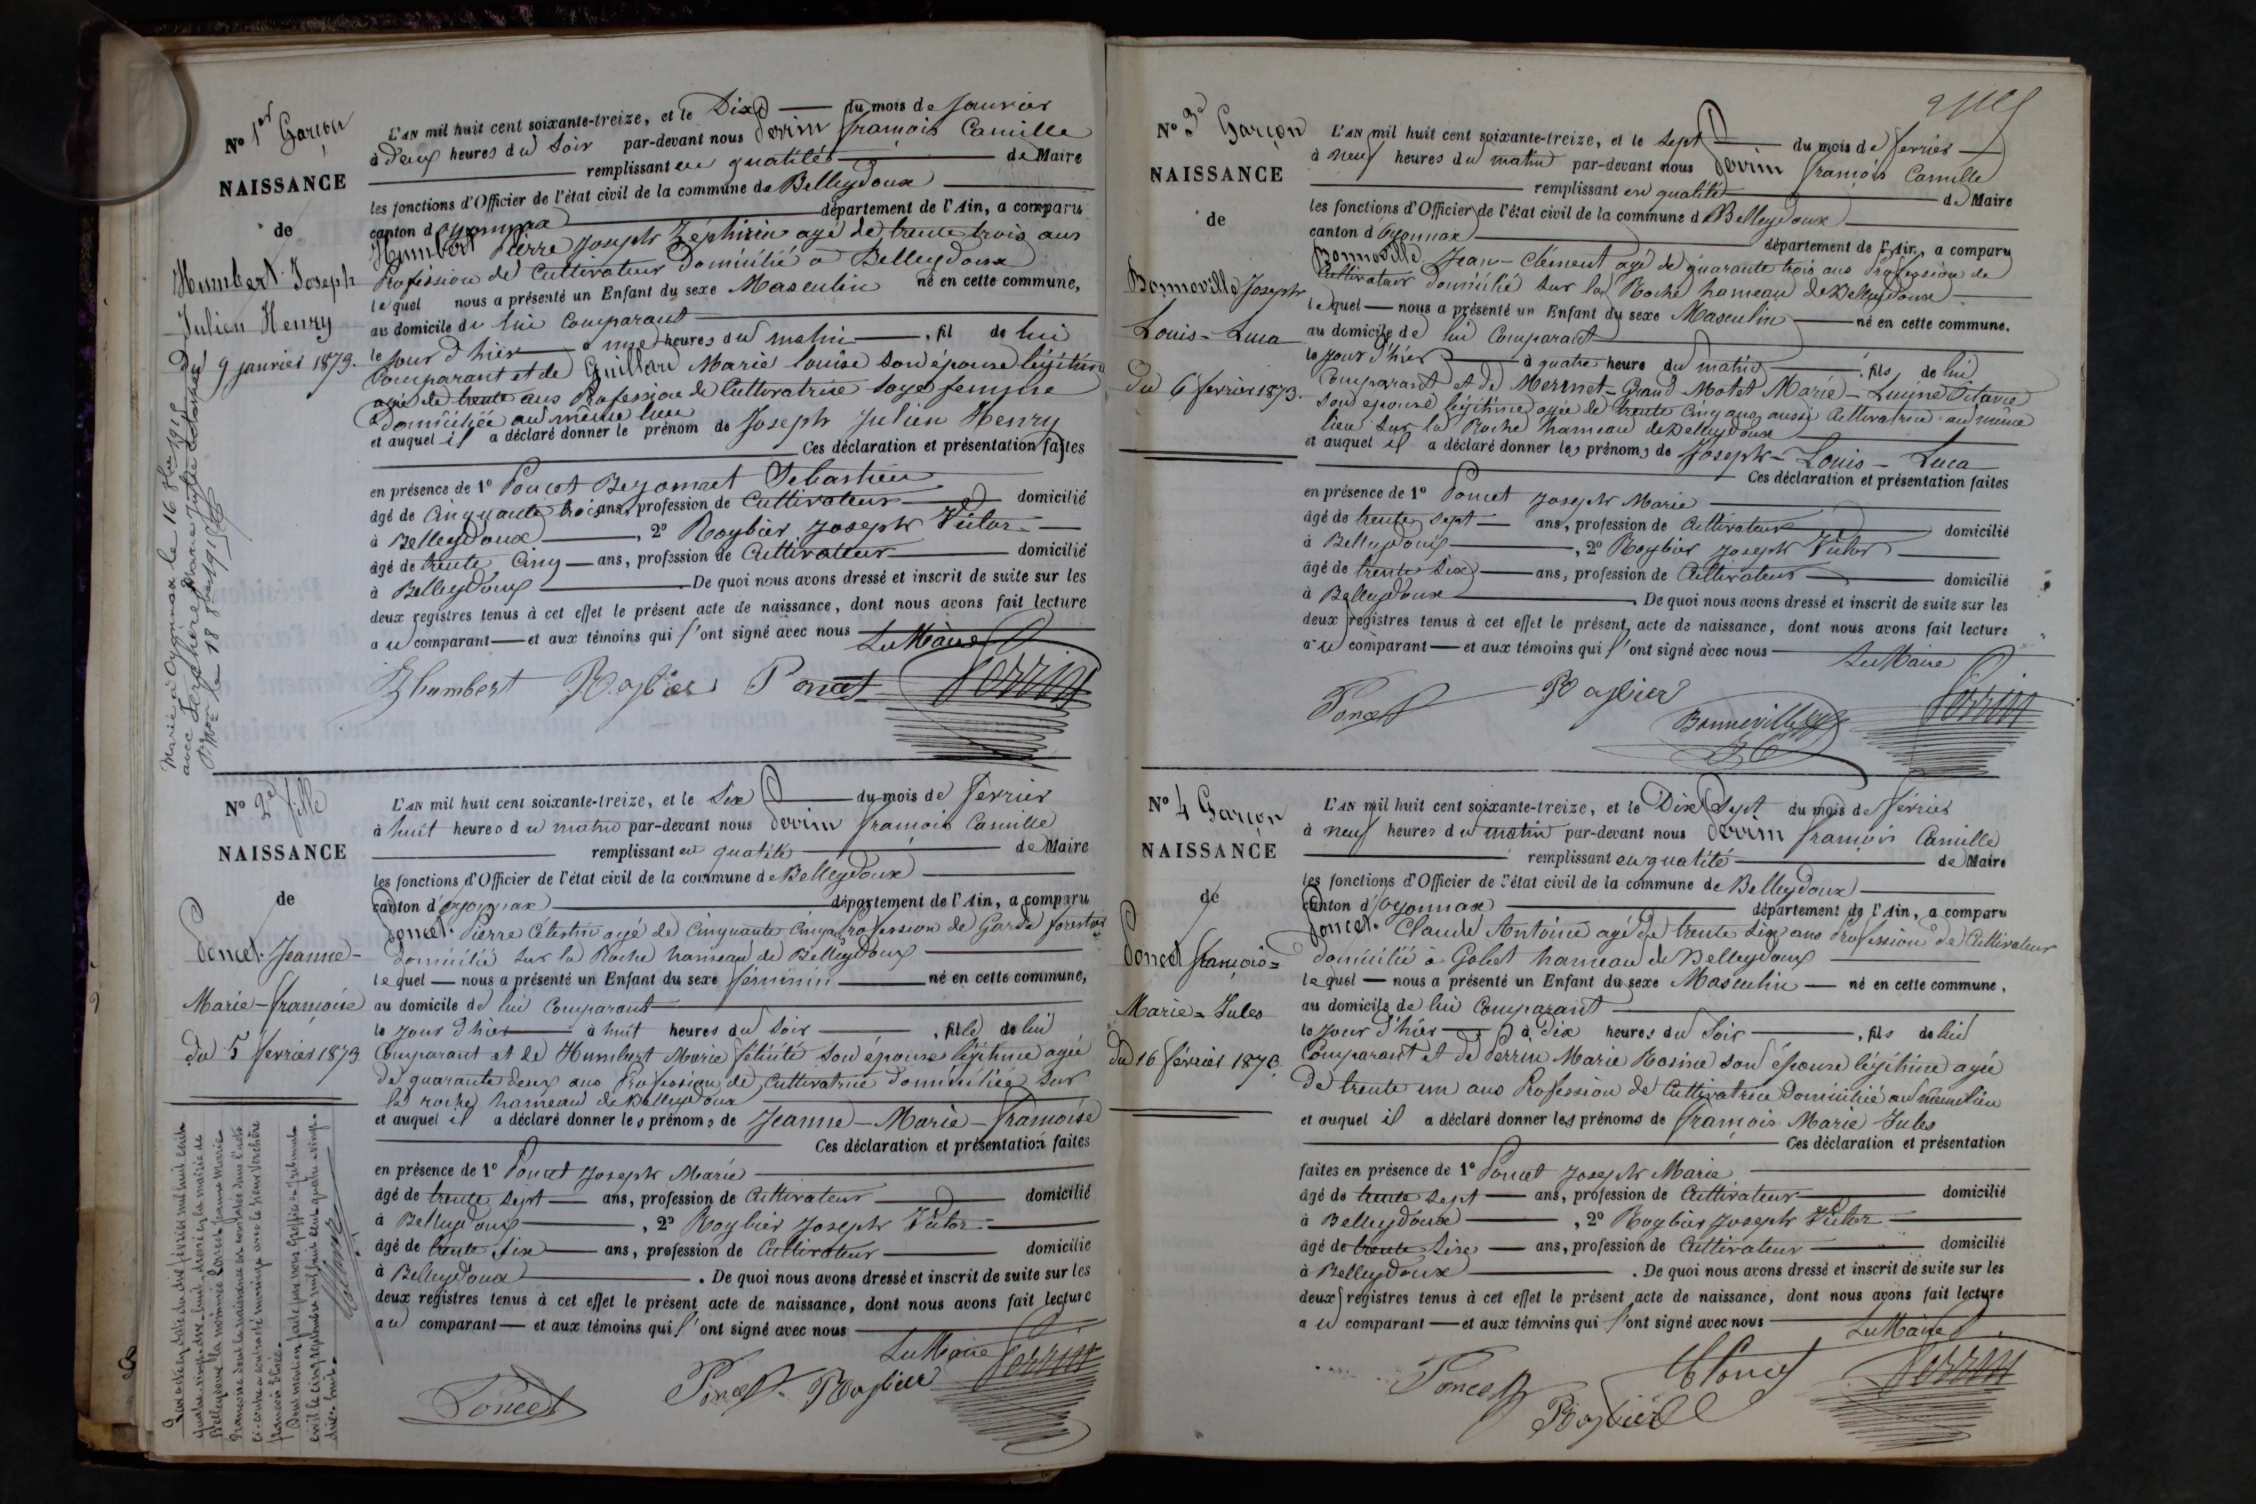 No 1er Garçon
NAISSANCE
de
Humbert Joseph
Julien Henry
du 9 janvier 1873.
Marié à Oyonnax le 16 8bre 191
avec Marie Julie
L'AN mil huit cent soixante-treize, et le Dix du mois de Janvier
à deux heures du Soir par-devant nous Perrin françois Camille
remplissant en qualité de Maire
les fonctions d'Officier de l'état civil de la commune de Belleydoux
canton d'oyonnax département de l'Ain, a comparu
Humbert Pierre Joseph Zéphirin agé de trente trois ans
Profession de Cultivateur Domicilié à Belleydoux
lequel nous a présenté un Enfant du sexe Masculin né en cette commune,
au domicile de lui Comparant
le jour d'hier à une heures du matin, fil de lui
Comparant et de Guillard Marie louise son épouse légitime
agée de trente ans Profession de Cultivatrice sage femme
Domiciliée au même lieu
et auquel il a déclaré donner le prénom de Joseph Julien Henry
Ces déclaration et présentation faites
en présence de 1° Poncet Sébastien
âgé de Cinquante trois ans, profession de Cultivateur domicilié
à Belleydoux, 2° Roybier Joseph Victor
âgé de trente Cinq ans, profession de Cultivateur domicilié
à Belleydoux De quoi nous avons dressé et inscrit de suite sur les
deux registres tenus à cet effet le présent acte de naissance, dont nous avons fait lecture
au comparant et aux témoins qui l'ont signé avec nous
Le Maire
Zhumbert Roybier Poncet Perrin
No 2e fille
NAISSANCE
de
Poncet Jeanne-
Marie-françoise
du 5 février 1873
L'AN mil huit cent soixante-treize, et le Six du mois de février
à huit heures du matin par-devant nous Perrin françois Camille
remplissant en qualité de Maire
les fonctions d'Officier de l'état civil de la commune de Belleydoux
canton d'oyonnax département de l'Ain, a comparu
Poncet Pierre Célestin agé de Cinquante Cinq ans Profession de Garde forestier
domicilié sur la Roche hameau de Belleydoux
lequel nous a présenté un Enfant du sexe féminin né en cette commune,
au domicile de lui Comparant
le jour d'hier à huit heures du Soir, fille de lui
Comparant et de Humbert Marie félicité son épouse légitime agée
de quarante deux ans Profession de Cultivatrice domiciliée sur
la roche hameau de Belleydoux
et auquel il a déclaré donner les prénoms de Jeanne-Marie-françoise
Ces déclaration et présentation faites
en présence de 1° Poncet Joseph Marie
âgé de trente Sept ans, profession de Cultivateur domicilié
à Belleydoux, 2° Roybier Joseph Victor
âgé de trente Six ans, profession de Cultivateur domicilié
à Belleydoux. De quoi nous avons dressé et inscrit de suite sur les
deux registres tenus à cet effet le présent acte de naissance, dont nous avons fait lecture
au comparant et aux témoins qui l'ont signé avec nous
Le Maire
Poncet Poncet Roybier Perrin
No 3e Garçon
NAISSANCE
de
Bonneville Joseph
Louis-Luca
du 6 février 1873.
L'AN mil huit cent soixante-treize, et le Sept du mois de février
à neuf heures du matin par-devant nous Perrin françois Camille
remplissant en qualité de Maire
les fonctions d'Officier de l'état civil de la commune de Belleydoux
canton d'Oyonnax département de l'Ain, a comparu
Bonneville Jean-Clément agé de quarante trois ans Profession de
Cultivateur domicilié sur la Roche hameau de Belleydoux
lequel nous a présenté un Enfant du sexe Masculin né en cette commune.
au domicile de lui Comparant
le jour d'hier à quatre heure du matin, fils de lui
Comparant et de Mermet-Grand Motet Marie
son épouse légitime agée de trente Cinq ans aussi Cultivatrice au même
lieu sur la Roche hameau de Belleydoux
et auquel il a déclaré donner les prénoms de Joseph-Louis-Luca
Ces déclaration et présentation faites
en présence de 1° Poncet Joseph Marie
âgé de trente sept ans, profession de Cultivateur domicilié
à Belleydoux, 2° Roybier Joseph Victor
âgé de trente Six ans, profession de Cultivateur domicilié
à Belleydoux. De quoi nous avons dressé et inscrit de suite sur les
deux registres tenus à cet effet le présent acte de naissance, dont nous avons fait lecture
au comparant et aux témoins qui l'ont signé avec nous
Le Maire
Poncet Roybier Bonneville Perrin
No 4 Garçon
NAISSANCE
de
Poncet françois=
Marie=Jules
du 16 février 1873.
L'AN mil huit cent soixante-treize, et le Dix Sept du mois de février
à neuf heures du matin par-devant nous Perrin françois Camille
remplissant en qualité de Maire
les fonctions d'Officier de l'état civil de la commune de Belleydoux
canton d'Oyonnax département de l'Ain, a comparu
Poncet Claude Antoine agé de trente six ans Profession de Cultivateur
domicilié à Gobet hameau de Belleydoux
lequel nous a présenté un Enfant du sexe Masculin né en cette commune,
au domicile de lui Comparant
le jour d'hier à Dix heures du Soir, fils de lui
Comparant et de Perrin Marie Rosine son épouse légitime agée
de trente un ans Profession de Cultivatrice Domiciliée au même lieu
et auquel il a déclaré donner les prénoms de françois Marie Jules
Ces déclaration et présentation
faites en présence de 1° Poncet Joseph Marie
âgé de trente sept ans, profession de Cultivateur domicilié
à Belleydoux, 2° Roybier Joseph Victor
âgé de trente Six ans, profession de Cultivateur domicilié
à Belleydoux. De quoi nous avons dressé et inscrit de suite sur les
deux registres tenus à cet effet le présent acte de naissance, dont nous avons fait lecture
au comparant et aux témoins qui l'ont signé avec nous
Le Maire
Poncet Poncet Perrin
Roybier